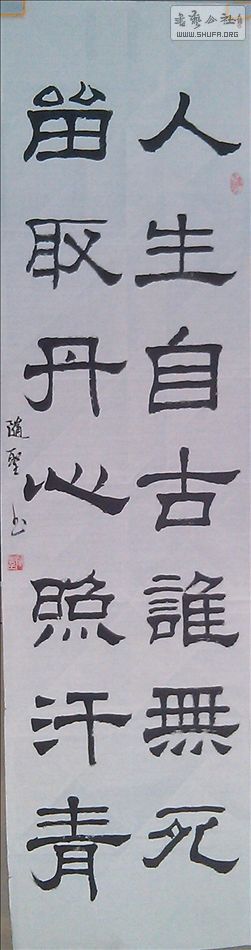 人生自古誰無死
留取丹心照汗青
隨聖书
书艺公社
WWW.SHUFA.ORG